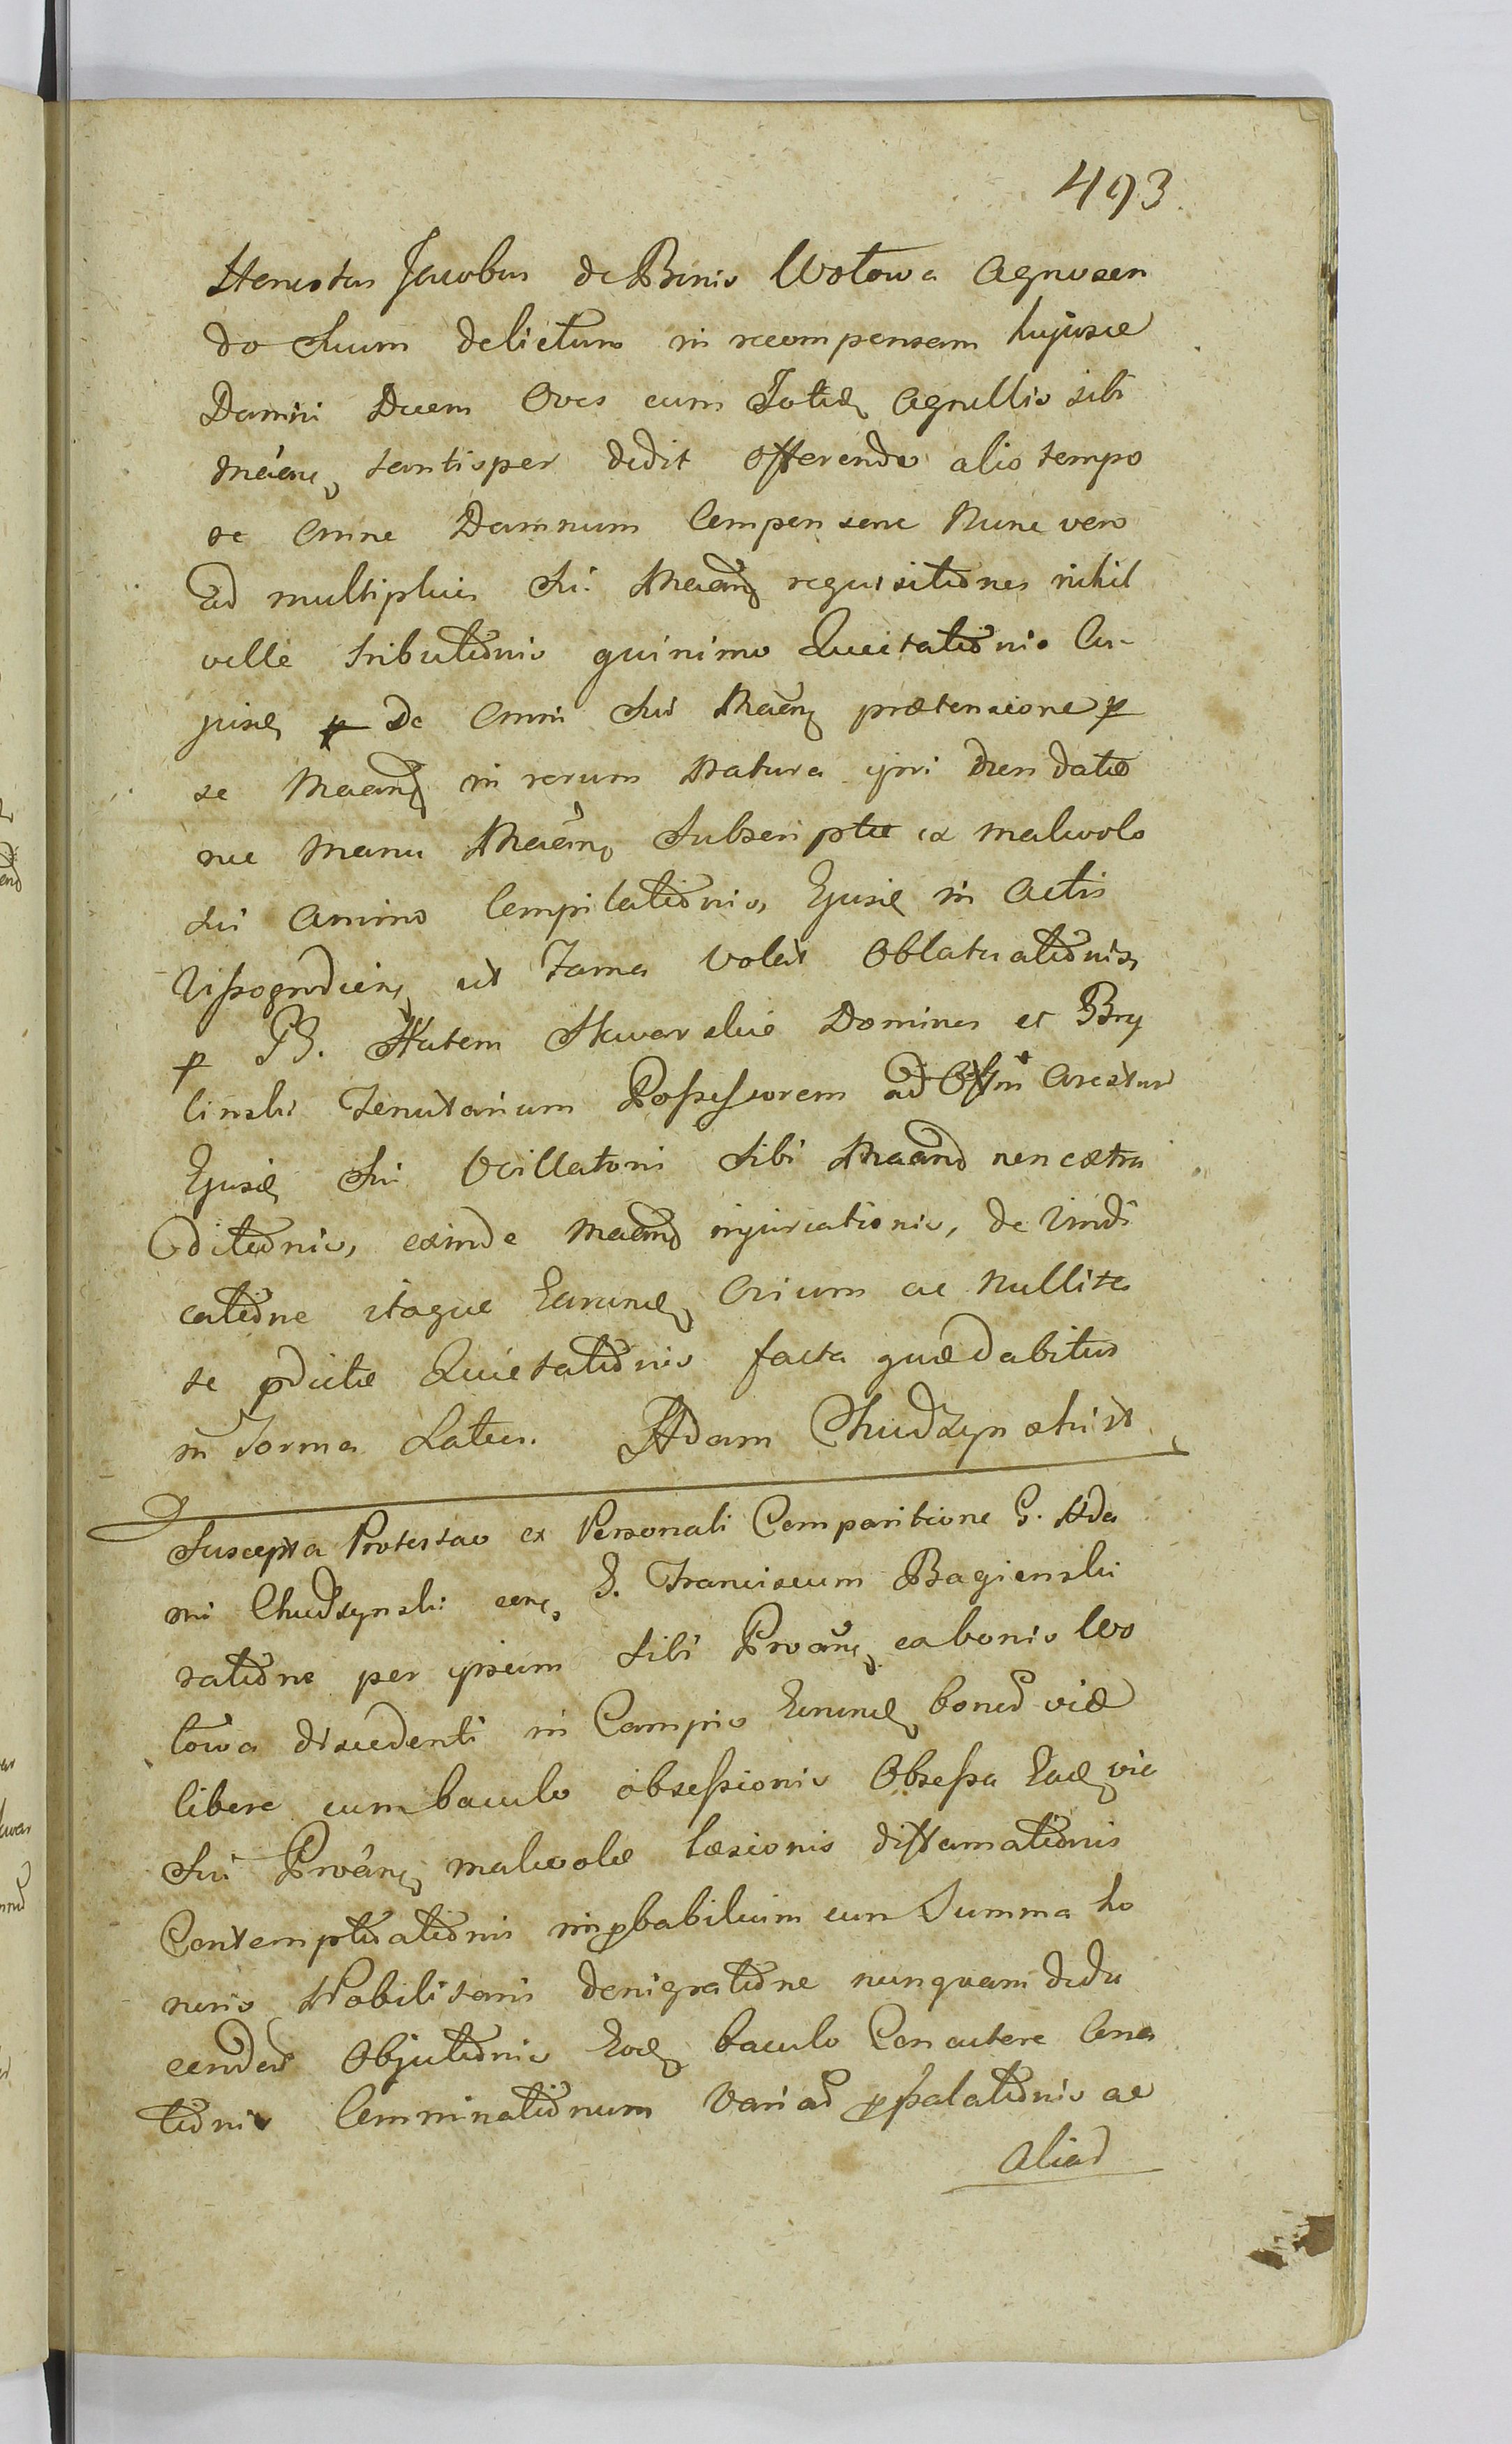 493.
Honestus Jacobus de Bonis Wołowa Agnoscen
do Suum delictum in recompensam hujusce
Damni Decem Oves cum Totidē Agnellis sibi
Mãeng tantisper dedit offerendo alio tempo
re omne Damnum Compensare Nunc vero
ad multiplices Sui Maeang requisitiones nihil
velle tributiõnis quinimo Quietatiõnis Cu-
jusē p de omni Sui Maeng prætensione p
se Maeang in rerum Natura ipsi Non datæ
nec Manu Maeang Subscriptæ ex malevolo
sui animo Compilatiõnis, Ejusē in Actis
Vissogrodieñ, ut Fama volat Oblatuatiõnis,
p G. Autem Skwarskie Dominos et Bry
linski Tenutarium Possessorem ad Offm Arestur
Ejusē Sui Vocillatoris Sibi Maeand non extra
ditiõnis, exinde Maeand injuriationis, de Vindi
catiõne itaque Earundē Ovium ac Nullita
te pdictæ Quietatiõnis facta quæ dabitur
in Forma Latius. Adam Chudzynski
Suscepta Protestao ex Personali Comparitione G. Ada
mi Chudzynski cong G. Franciscum Bagienski
ratiõne per ipsum Sibi Proang ex bonis Wo
łowa discedenti in Campis Eorundē bonor viæ
liberæ cum baculo obsessionis Obsessa Eadē via
Sui Proang malevolæ læsionis diffamatiõnis
Contemptuatiõnis improbabilium cum Summa ho
noris Nobilitaris denigratiõne nunquam dedu
cendor Objectiõnis Eodē baculo Concutere Cona
tiõnis Comminatiõnum Variar ppalatiõnis ac
aliar